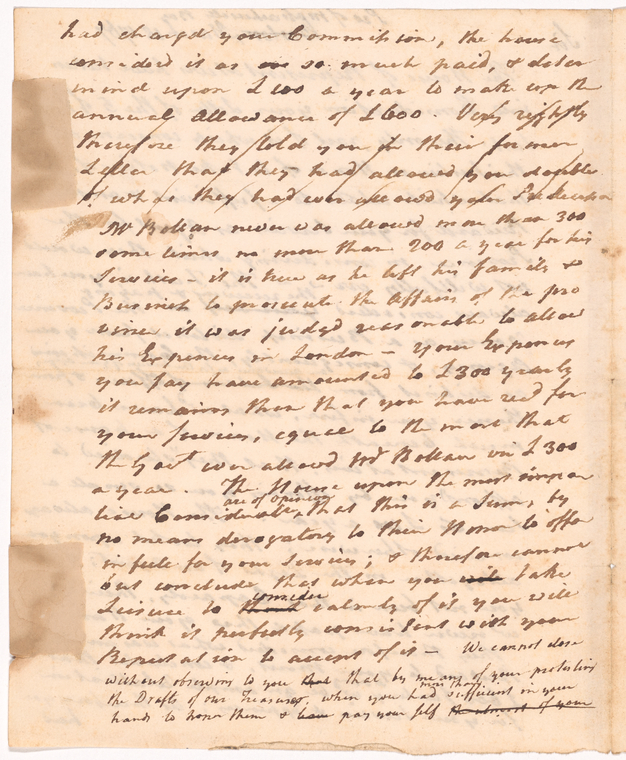 had chargd your Commission, the house
considerd it as so much paid, & deter
mind upon £100 a year to make up the
annual allowance of £600. Very rightly
therefore they told you in their former
Letter that they had allowed you double
of what they had ever allowd your Predecessor
Mr Bollan never was allowed more than 300
some times no more than 200 a year for his
Services - it is true as he left his family &
Business to prosecute the Affairs of the pro
vince it was judgd reasonable to allow
his Expences in London - your Expences
you say have amounted to £300 yearly
it remains then that you have recd for
your services, equal to the most that
the Govt ever allowd Mr Bollan viz £300
a year. The House upon the most impar
are of opinion
tial Consideration, that this is a Sum, by
no means derogatory to their Honor to offer
in full for your Services; & therefore cannot
but conclude, that when you will take
consider
Leisure to think calmly of it you will
think it perfectly consistent with your
Reputation to accept of it - We cannot close
without observing to you that that by means of your protesting
the Drafts of our Treasurer, when you had sufficient in your
more than
hands to honor them & pay your self the utmost of your